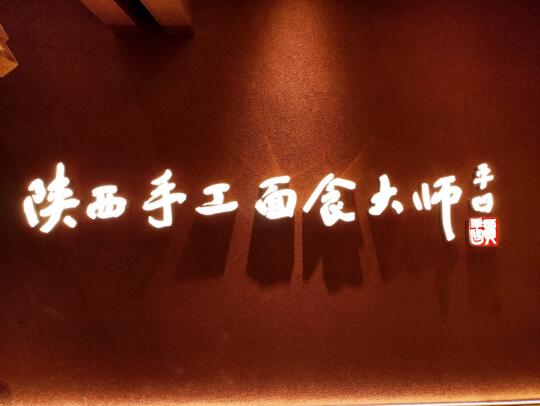 陕西手工面食大师